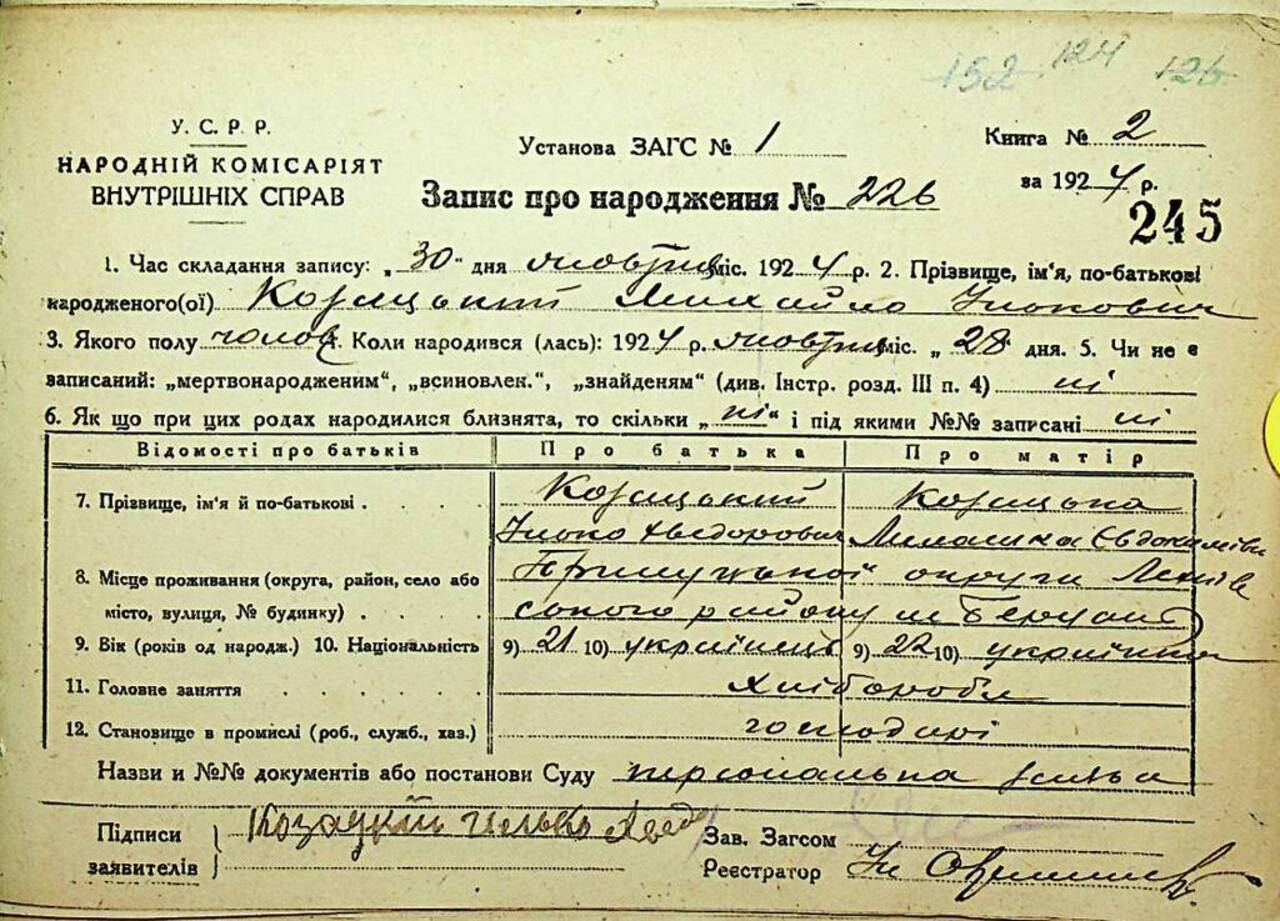 152 124 126
У. С. Р. Р.
НАРОДНІЙ КОМІСАРІЯТ
ВНУТРІШНІХ СПРАВ
Установа ЗАГС № 1
Книга № 2
за 1924 р.
Запис про народження № 226
245
1. Час складання запису: „30" дня жовтня міс. 1924 р. 2. Прізвище, ім'я, по-батькові
народженого(ої) Козацький Михайло Ількович
3. Якого полу чолов. 4. Коли народився (лась): 1924 р. жовтня міс. „28" дня. 5. Чи не є
записаний: „мертвонародженим", „всиновлен.", „знайденям" (див. Інстр. розд. III п. 4) ні
6. Як що при цих родах народилися близнята, то скільки „ні" і під якими №№ записані ні
Відомості про батьків Про батька Про матір
7. Прізвище, ім'я й по-батькові . . . . Козацький Козацька
Ілько Хведорович Євдокимівн
8. Місце проживання (округа, район, село або Прилуцької округи
місто, вулиця, № будинку) . . . . ського району
9. Вік (років од народж.) 10. Національність 9) 21 10) українець 9) 22 10) українка
11. Головне заняття . . . . . . Хлібороби
12. Становище в промислі (роб., служб., хаз.) господарі
Назви и №№ документів або постанови Суду персональна
Підписи Козацкій Илько
заявителів
Зав. Загсом
Реєстратор